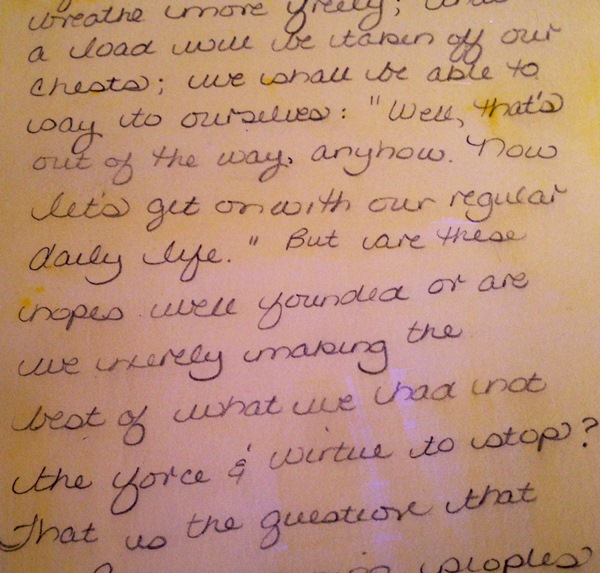 breathe more freely; and
a load will be taken off our
chests; we shall be able to
say to ourselves: "Well, that's
out of the way, anyhow. Now
let's get on with our regular
daily life." But are these
hopes well founded or are
we merely making the
best of what we had not
the force & virtue to stop?
That is the question that
peoples